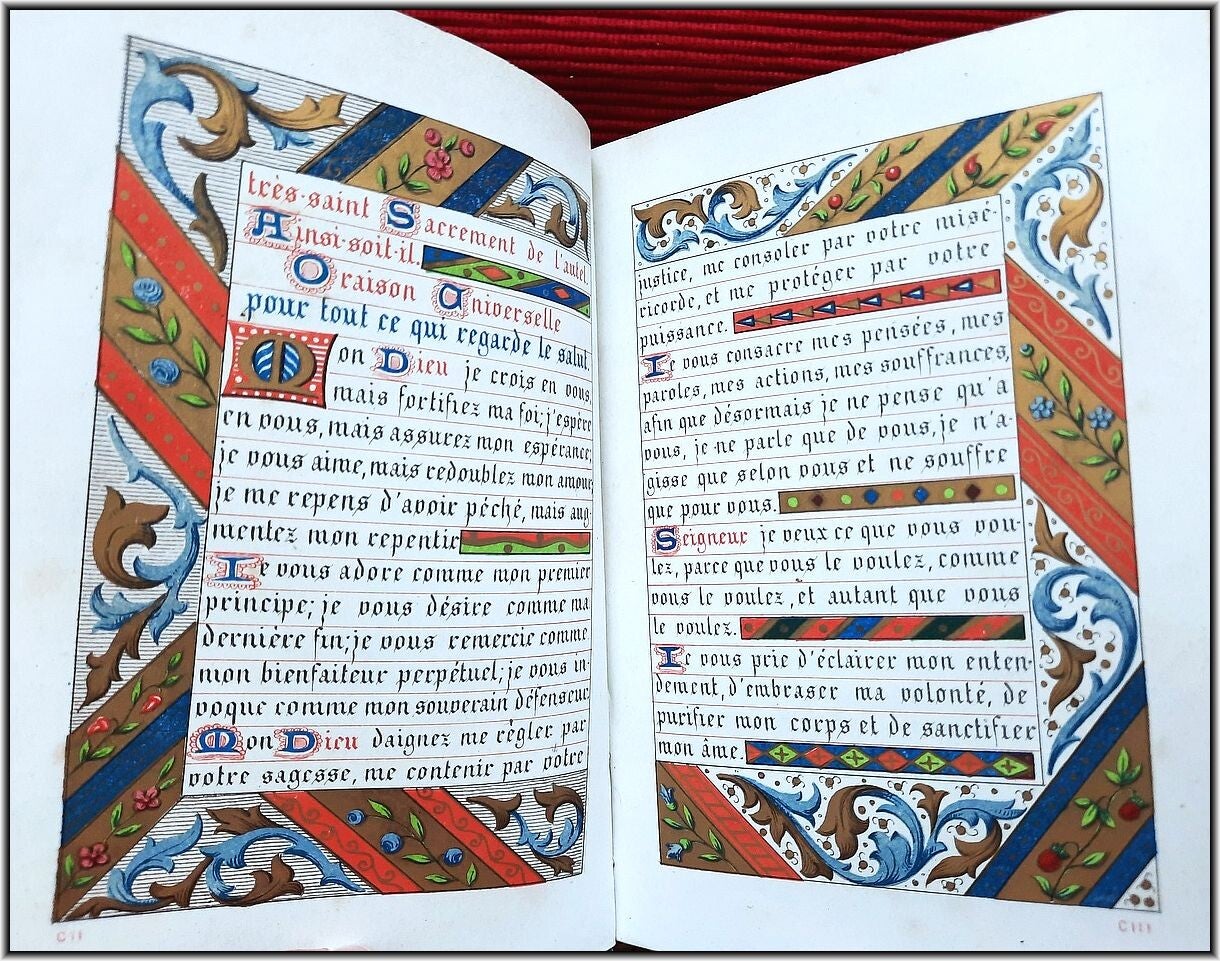 très-saint Sacrement de l'autel
Ainsi-soit-il.
Oraison Universelle
pour tout ce qui regarde le salut.
Mon Dieu je crois en vous,
mais fortifiez ma foi; j'espère
en vous, mais assurez mon espérance;
je vous aime, mais redoublez mon amour;
je me repens d'avoir péché, mais aug-
mentez mon repentir
Je vous adore comme mon premier
principe; je vous désire comme ma
dernière fin; je vous remercie comme
mon bienfaiteur perpétuel; je vous in-
voque comme mon souverain défenseur
Mon Dieu daignez me règler par
votre sagesse, me contenir par votre
CII
justice, me consoler par votre misé-
ricorde, et me protéger par votre
puissance.
Je vous consacre mes pensées, mes
paroles, mes actions, mes souffrances,
afin que désormais je ne pense qu'à
vous, je ne parle que de vous, je n'a-
gisse que selon vous et ne souffre
que pour vous.
Seigneur je veux ce que vous vou-
lez, parce que vous le voulez, comme
vous le voulez, et autant que vous
le voulez.
Je vous prie d'éclairer mon enten-
dement, d'embraser ma volonté, de
purifier mon corps et de sanctifier
mon âme.
CIII